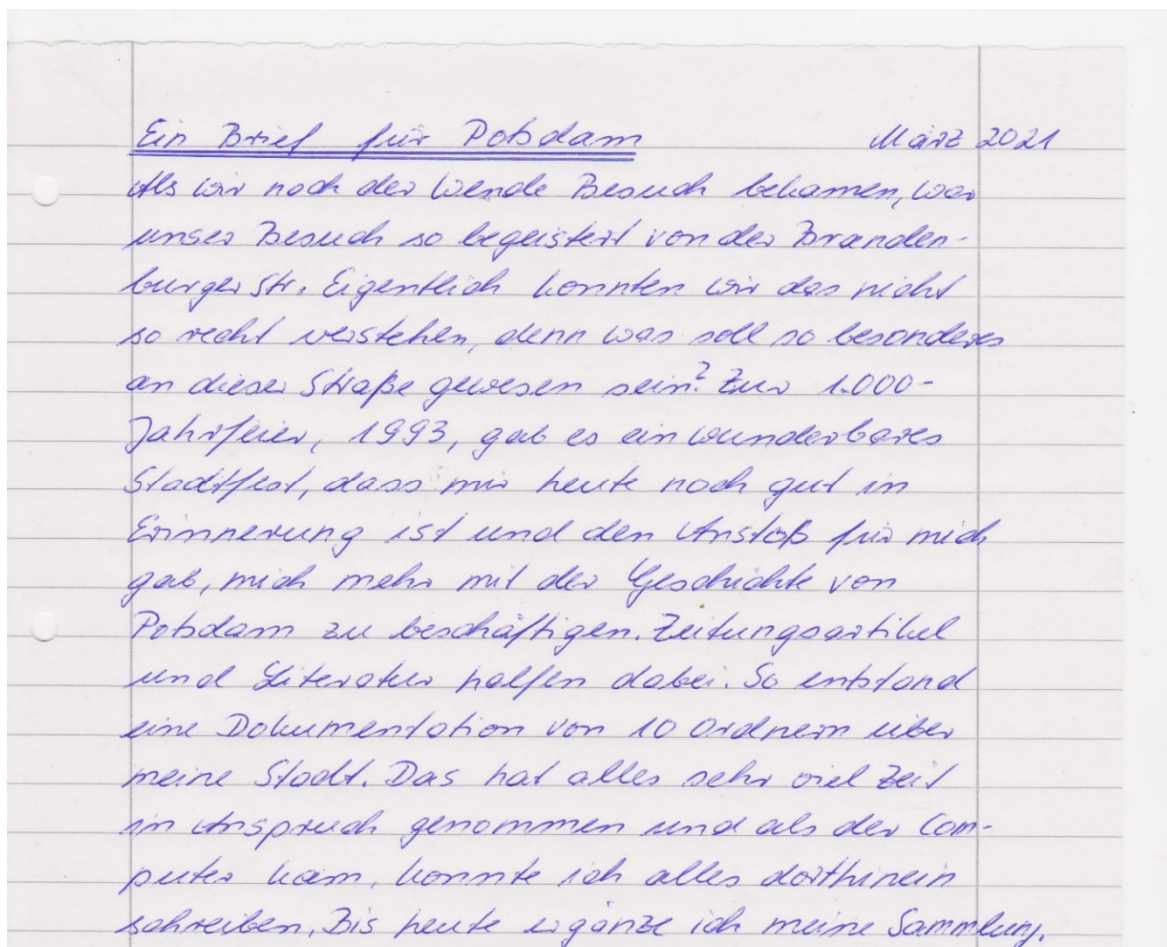 Ein Brief für Potsdam März 2021
Als wir nach der Wende Besuch bekamen, war
unser Besuch so begeistert von der Branden-
burger Str. Eigentlich konnten wir das nicht
so recht verstehen, denn was soll so besonderes
an dieser Straße gewesen sein? Zur 1.000-
Jahrfeier, 1993, gab es ein wunderbares
Stadtfest, dass mir heute noch gut in
Erinnerung ist und den Anstoß für mich
gab, mich mehr mit der Geschichte von
Potsdam zu beschäftigen. Zeitungsartikel
und Literatur halfen dabei. So entstand
eine Dokumentation von 10 Ordnern über
meine Stadt. Das hat alles sehr viel Zeit
in Anspruch genommen und als der Com-
puter kam, konnte ich alles dorthinein
schreiben. Bis heute ergänze ich meine Sammlung.